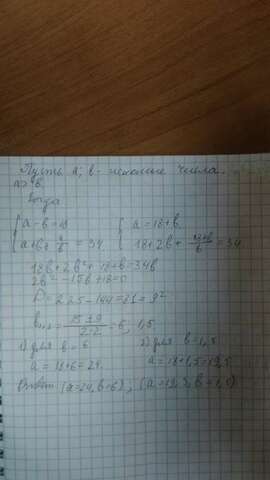 Пусть a; b - искомые числа.
a > b.
Тогда
{ a - b = 18
{ a + b + a/b = 34
{ a = 18 + b
{ 18 + 2b + (18+b)/b = 34
18b + 2b² + 18 + b = 34b
2b² - 15b + 18 = 0
D = 225 - 144 = 81 = 9²
b₁,₂ = (15 ± 9)/(2·2) = 6; 1,5
1) для b = 6
a = 18 + 6 = 24.
2) для b = 1,5
a = 18 + 1,5 = 19,5
Ответ: (a = 24, b = 6), (a = 19,5, b = 1,5)